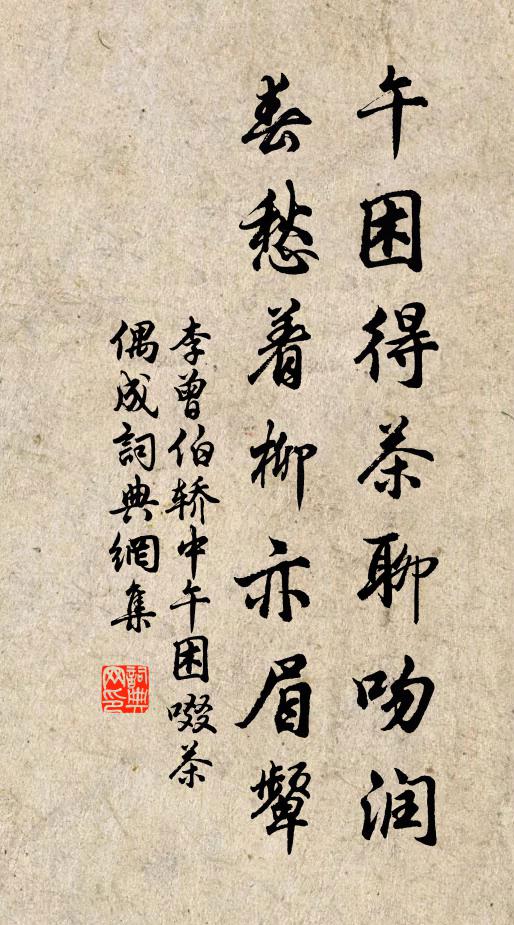 午困得茶聊吻润
春愁着柳亦眉颦
李曾伯轿中午困啜茶
偶成詞典網集
詞典
网印